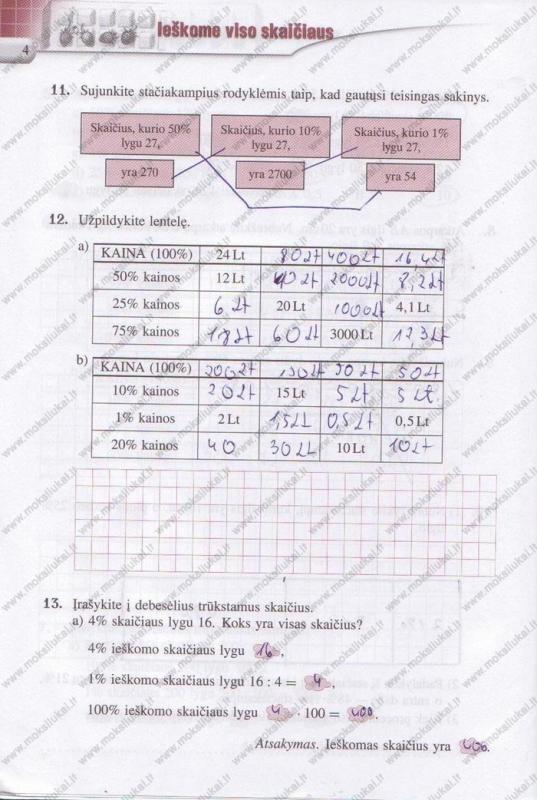 Ieškome viso skaičiaus
4
11. Sujunkite stačiakampius rodyklėmis taip, kad gautųsi teisingas sakinys.
Skaičius, kurio 50% lygu 27,
Skaičius, kurio 10% lygu 27,
Skaičius, kurio 1% lygu 27,
yra 270
yra 2700
yra 54
12. Užpildykite lentelę.
a)
KAINA (100%) 24 Lt 80 Lt 400 Lt 16,4 Lt
50% kainos 12 Lt 40 Lt 2000 Lt 8,2 Lt
25% kainos 6 Lt 20 Lt 1000 Lt 4,1 Lt
75% kainos 18 Lt 60 Lt 3000 Lt 12,3 Lt
b)
KAINA (100%) 200 Lt 150 Lt 50 Lt 50 Lt
10% kainos 20 Lt 15 Lt 5 Lt 5 Lt
1% kainos 2 Lt 1,5 Lt 0,5 Lt 0,5 Lt
20% kainos 40 30 Lt 10 Lt 10 Lt
13. Įrašykite į debesėlius trūkstamus skaičius.
a) 4% skaičiaus lygu 16. Koks yra visas skaičius?
4% ieškomo skaičiaus lygu 16,
1% ieškomo skaičiaus lygu 16 : 4 = 4,
100% ieškomo skaičiaus lygu 4 · 100 = 400.
Atsakymas. Ieškomas skaičius yra 400.
www.moksliukai.lt